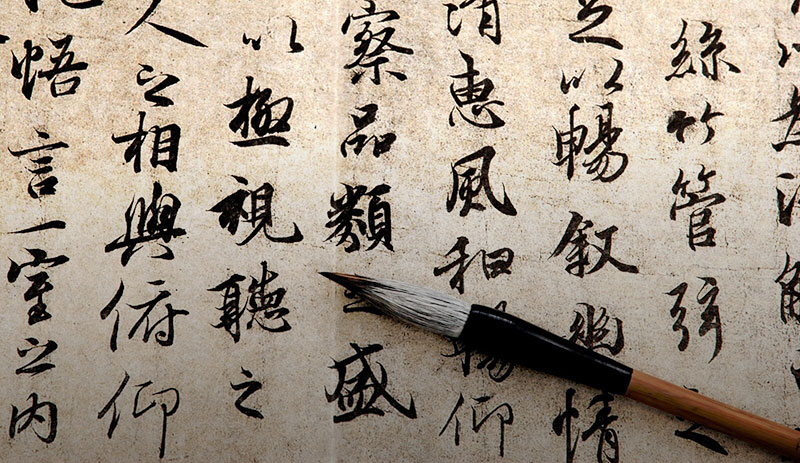 絲竹管弦之
以暢叙幽情
清惠風和暢仰
察品類之盛
以極視聽之
人之相與俯仰
悟言一室之内